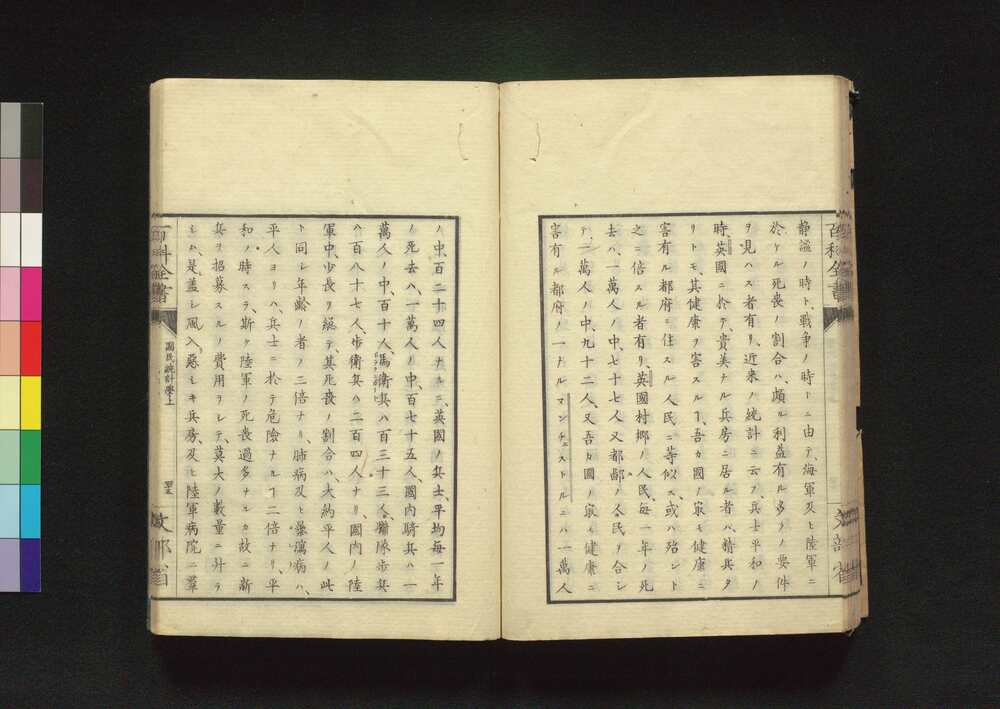 静謐ノ時ト、戦争ノ時トニ由テ、海軍及ヒ陸軍ニ
於ケル死喪ノ割合ハ、頗ル利益有ル多少ノ要件
ヲ見ハス者有リ、近来ノ統計ニ云ヲ、兵士平和ノ
時、英國ニ於テ、貴美ナル兵房ニ居ル者ハ、精兵タ
リトモ、其健康ヲ害スルヿ、吾カ國ノ㝡モ健康ニ
害有ル都府ニ住スル人民ニ等似ス、或ハ殆ント
之ニ倍スル者有リ、英國村郷ノ人民、毎一年ノ死
去ハ、一萬人ノ中、七十七人、又都鄙ノ人民ヲ合シ
テ、一萬人ノ中、九十二人、又吾カ國ノ㝡モ健康ニ
害有ル都府ノ一ナルマンチェストルニハ一萬人
ノ、中百二十四人ナルニ、英國ノ兵士、平均毎一年
ノ死去ハ、一萬人ノ中、百七十五人、國内騎兵ハ一
萬人ノ中、百十人、馬衛兵ハ百三十三人、聯隊歩兵
ハ百八十七人、歩衛兵ハ二百四人ナリ、國内ノ陸
軍中、少長リ總テ、其死喪ノ割合ハ、大約平人ノ此
ト同シ年齢ノ者ノ二倍ナリ、肺病及ヒ瘰癘病ハ、
平人ヨリハ、兵士ニ於テ危險ナルヿ二倍ナリ、平
和ノ時スラ、斯ク陸軍ノ死喪過多ナルカ故ニ、新
兵ヲ招募スルノ費用ヲシテ、莫大ノ數量ニ升ラ
シム、是蓋シ風入惡シキ兵房、及ヒ陸軍病院ニ羣
百科全書
國民統計學上
文部省